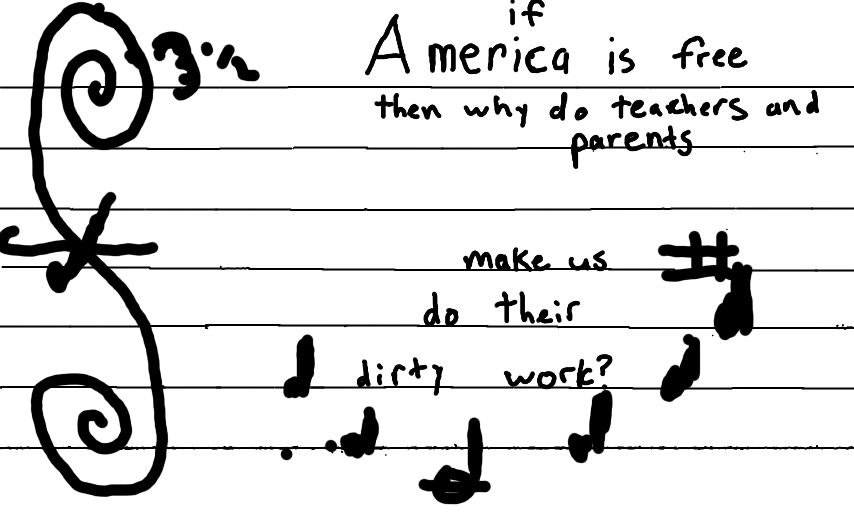 if
America is free
then why do teachers and
parents
make us
do their
dirty work?